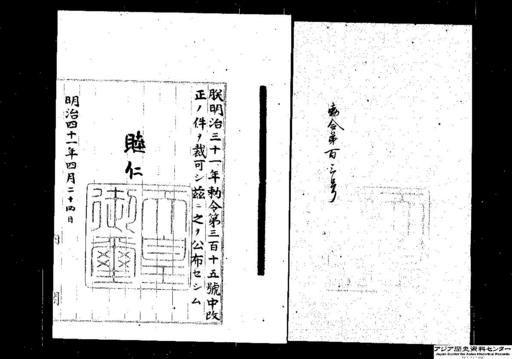 勅令第百三号
朕明治三十一年勅令第三百十五號中改
正ノ件ヲ裁可シ茲ニ之ヲ公布セシム
睦仁
天皇
御璽
明治四十一年四月二十四日
内閣
アジア歴史資料センター
Japan Center for Asian Historical Records